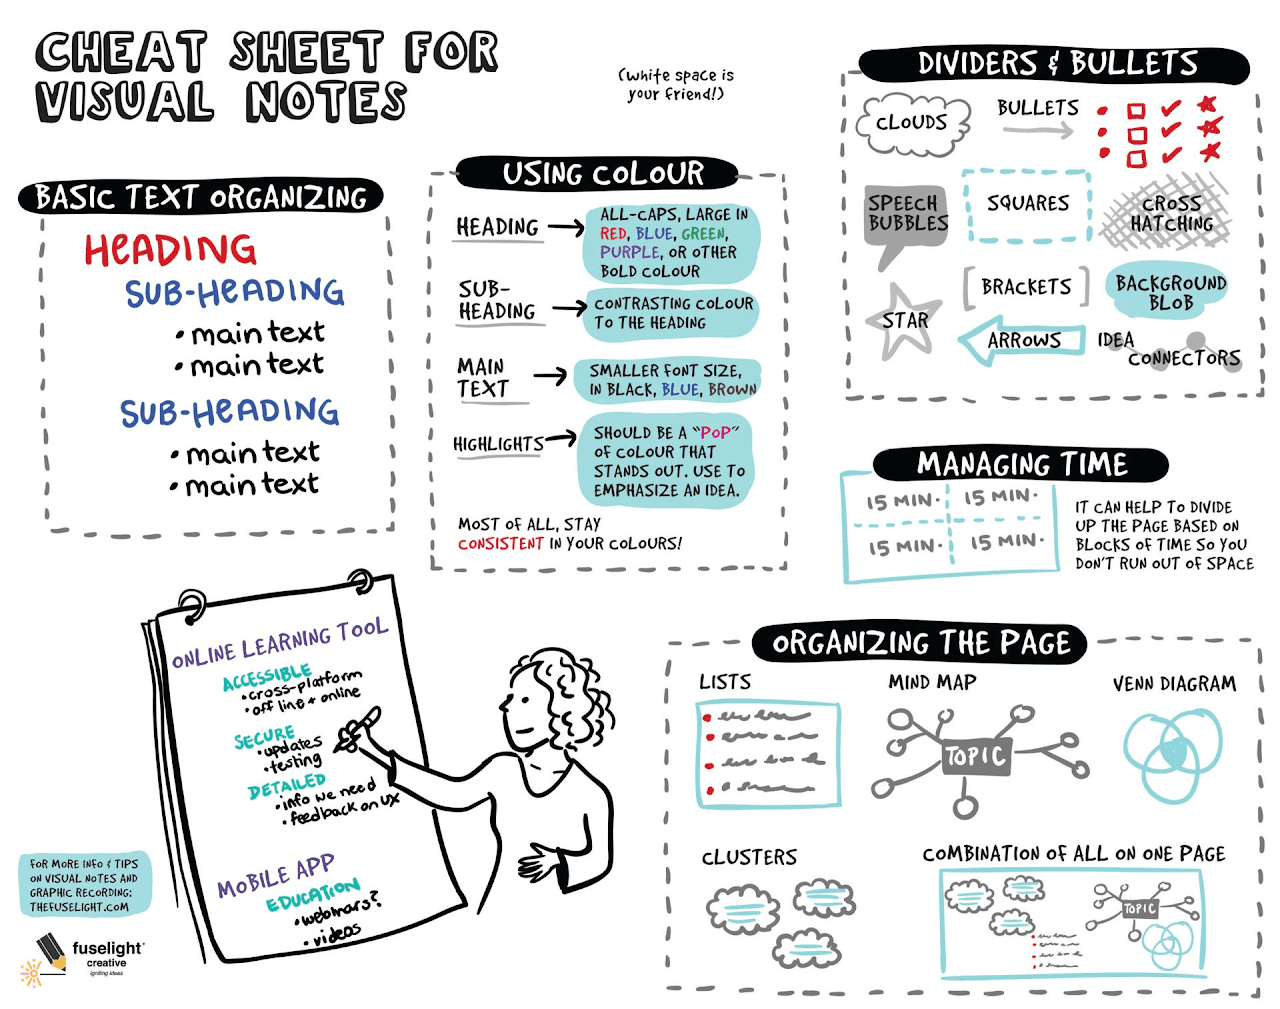 CHEAT SHEET FOR
VISUAL NOTES
(white space is
your friend!)
BASIC TEXT ORGANIZING
HEADING
SUB-HEADING
• main text
• main text
SUB-HEADING
• main text
• main text
USING COLOUR
HEADING
ALL-CAPS, LARGE IN
RED, BLUE, GREEN,
PURPLE, OR OTHER
BOLD COLOUR
SUB-
HEADING
CONTRASTING COLOUR
TO THE HEADING
MAIN
TEXT
SMALLER FONT SIZE,
IN BLACK, BLUE, BROWN
HIGHLIGHTS
SHOULD BE A "POP"
OF COLOUR THAT
STANDS OUT. USE TO
EMPHASIZE AN IDEA.
MOST OF ALL, STAY
CONSISTENT IN YOUR COLOURS!
DIVIDERS & BULLETS
CLOUDS
BULLETS
SPEECH
BUBBLES
SQUARES
CROSS
HATCHING
STAR
[BRACKETS]
BACKGROUND
BLOB
ARROWS
IDEA
CONNECTORS
MANAGING TIME
15 MIN.
15 MIN.
15 MIN.
15 MIN.
IT CAN HELP TO DIVIDE
UP THE PAGE BASED ON
BLOCKS OF TIME SO YOU
DON'T RUN OUT OF SPACE
ONLINE LEARNING TOOL
ACCESSIBLE
• cross-platform
• off line + online
SECURE
• updates
• testing
DETAILED
• info we need
• feedback on UX
MOBILE APP
EDUCATION
• webinars?
• videos
ORGANIZING THE PAGE
LISTS
MIND MAP
TOPIC
VENN DIAGRAM
CLUSTERS
COMBINATION OF ALL ON ONE PAGE
TOPIC
FOR MORE INFO & TIPS
ON VISUAL NOTES AND
GRAPHIC RECORDING:
THEFUSELIGHT.COM
fuselight
creative
igniting ideas